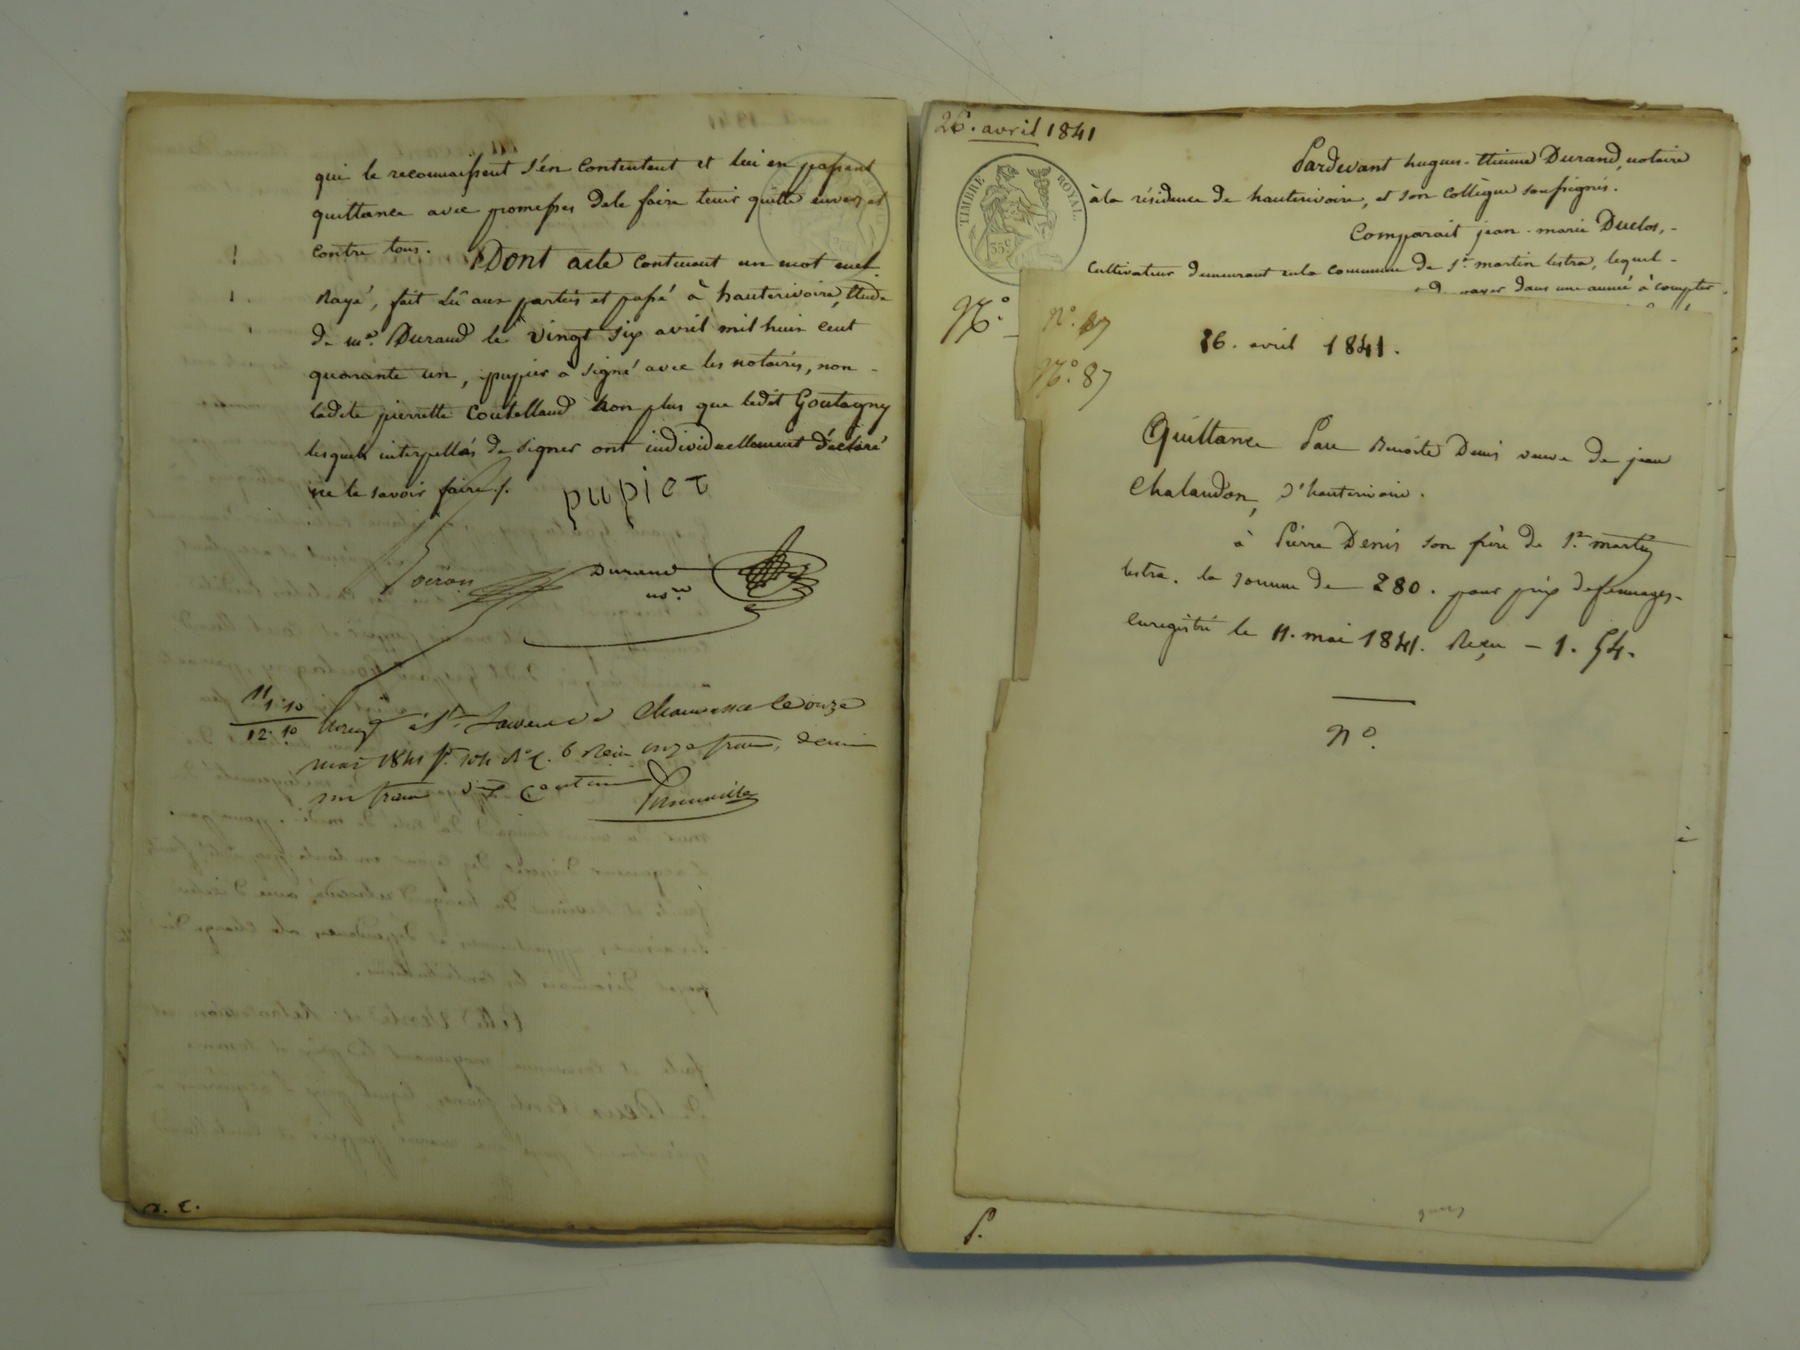 qui le reconnaissent s'en contentent et lui en passent
quittance avec promesses de le faire tenir quitte envers et
contre tous. Dont acte contenant un mot nul
Rayé, fait Lû aux parties et passé à hauterivoire, Etude
de me. Durand le vingt six avril mil huit cent
quarante un, pupier a signé avec les notaires, non
ladite pierrette Coutelland non plus que ledit Goutagny
lesquels interpellés de signer ont individuellement déclaré
ne le savoir faire /.
pupier
Durand
nore
11. 10
1.
12. 10
à St. Laurent de Chamousset le onze
mai 1841 fo. 104 Ro C. 6 Reçu onze francs, decime
un franc dix Centimes
n. e.
26. avril 1841
TIMBRE ROYAL
35c
Pardevant hugues-Etienne Durand, notaire
à la résidence de hauterivoire, et son collègue soussignés.
Comparait jean-marie Duclos,
Cultivateur demeurant en la commune de St. martin lestra, lequel
payer dans une année à compter
No.
No. 87
No. 87
26. avril 1841.
Quittance Par Benoite Denis veuve de jean
Chalandon, d'hauterivoire.
à Pierre Denis son frère de St. martin
lestra. la somme de 280. pour prix de fermages
enregistré le 11. mai 1841. Reçu – 1. 54.
No.
P.